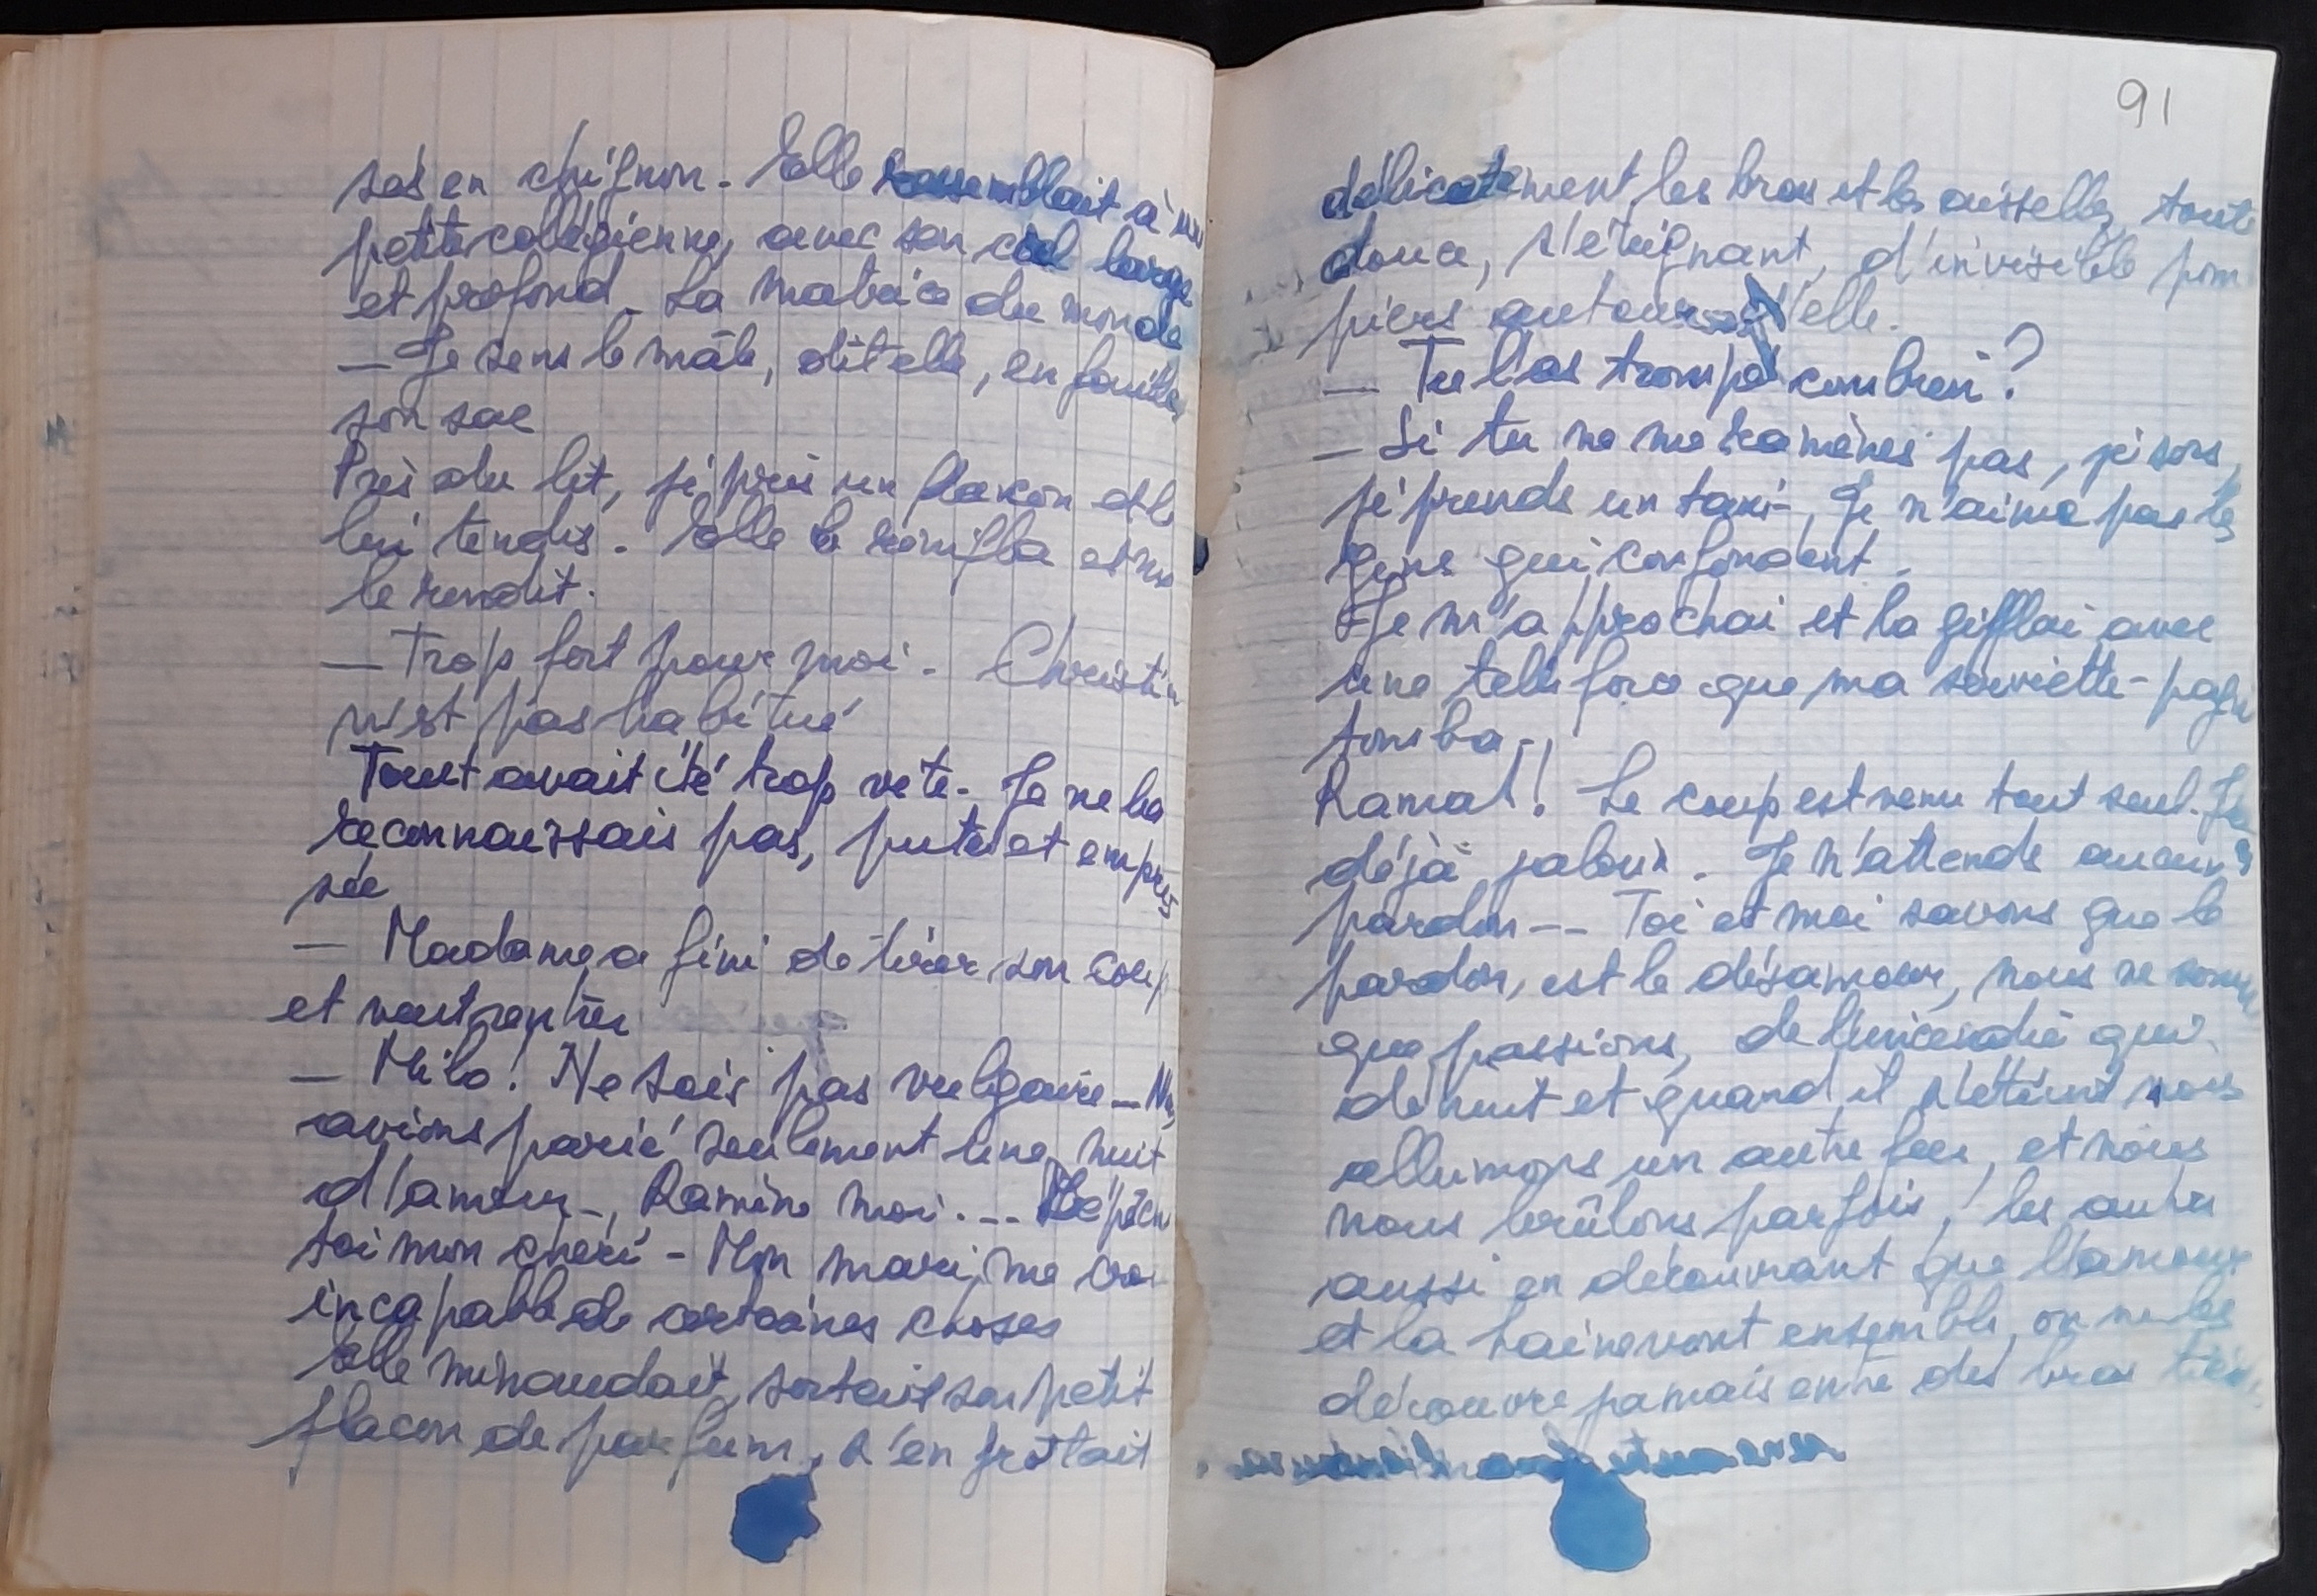 sés en chignon. Elle ressemblait à une
petite collégienne, avec son œil large
et profond. La matrice du monde
— Je sens le mâle, dit elle, en fouillant
son sac
Près du lit, je pris un flacon et le
lui tendis. Elle le renifla et me
le rendit.
— Trop fort pour moi. Christian
n'est pas habitué
Tout avait été trop vite. Je ne la
reconnaissais pas, pute et empres
sée
— Madame a fini de tirer son coup
et veut rentrer
— Milo! Ne sois pas vulgaire — Nous
avions parié seulement une nuit
d'amour.., Ramène moi... Dépêche
toi mon chéri - Mon mari, me croit
incapable de certaines choses
Elle minaudait, sortait son petit
flacon de parfum, s'en frottait
91
délicatement, les bras et les aisselles, toute
douce, s'éteignant, d'invisible pom
piers autour d'elle.
— Tu l'as trompé combien?
— Si tu ne me ramènes pas, je sors,
je prends un taxi -, Je n'aime pas les
gens qui confondent.
Je m'approchai et la gifflai avec
une telle force que ma serviette-pagne
tomba..
Ramat! Le coup est venu tout seul. J'
déjà jaloux. Je n'attends aucun
pardon-- Toi et moi savons que le
pardon, est le désamour, nous ne sommes
que passions, de l'incendie qui
détruit et quand il s'etteint nous
allumons un autre feu, et nous
nous brûlons parfois, les autres
aussi en découvrant que l'amour
et la haine vont ensemble, on ne les
découvre jamais entre des bras